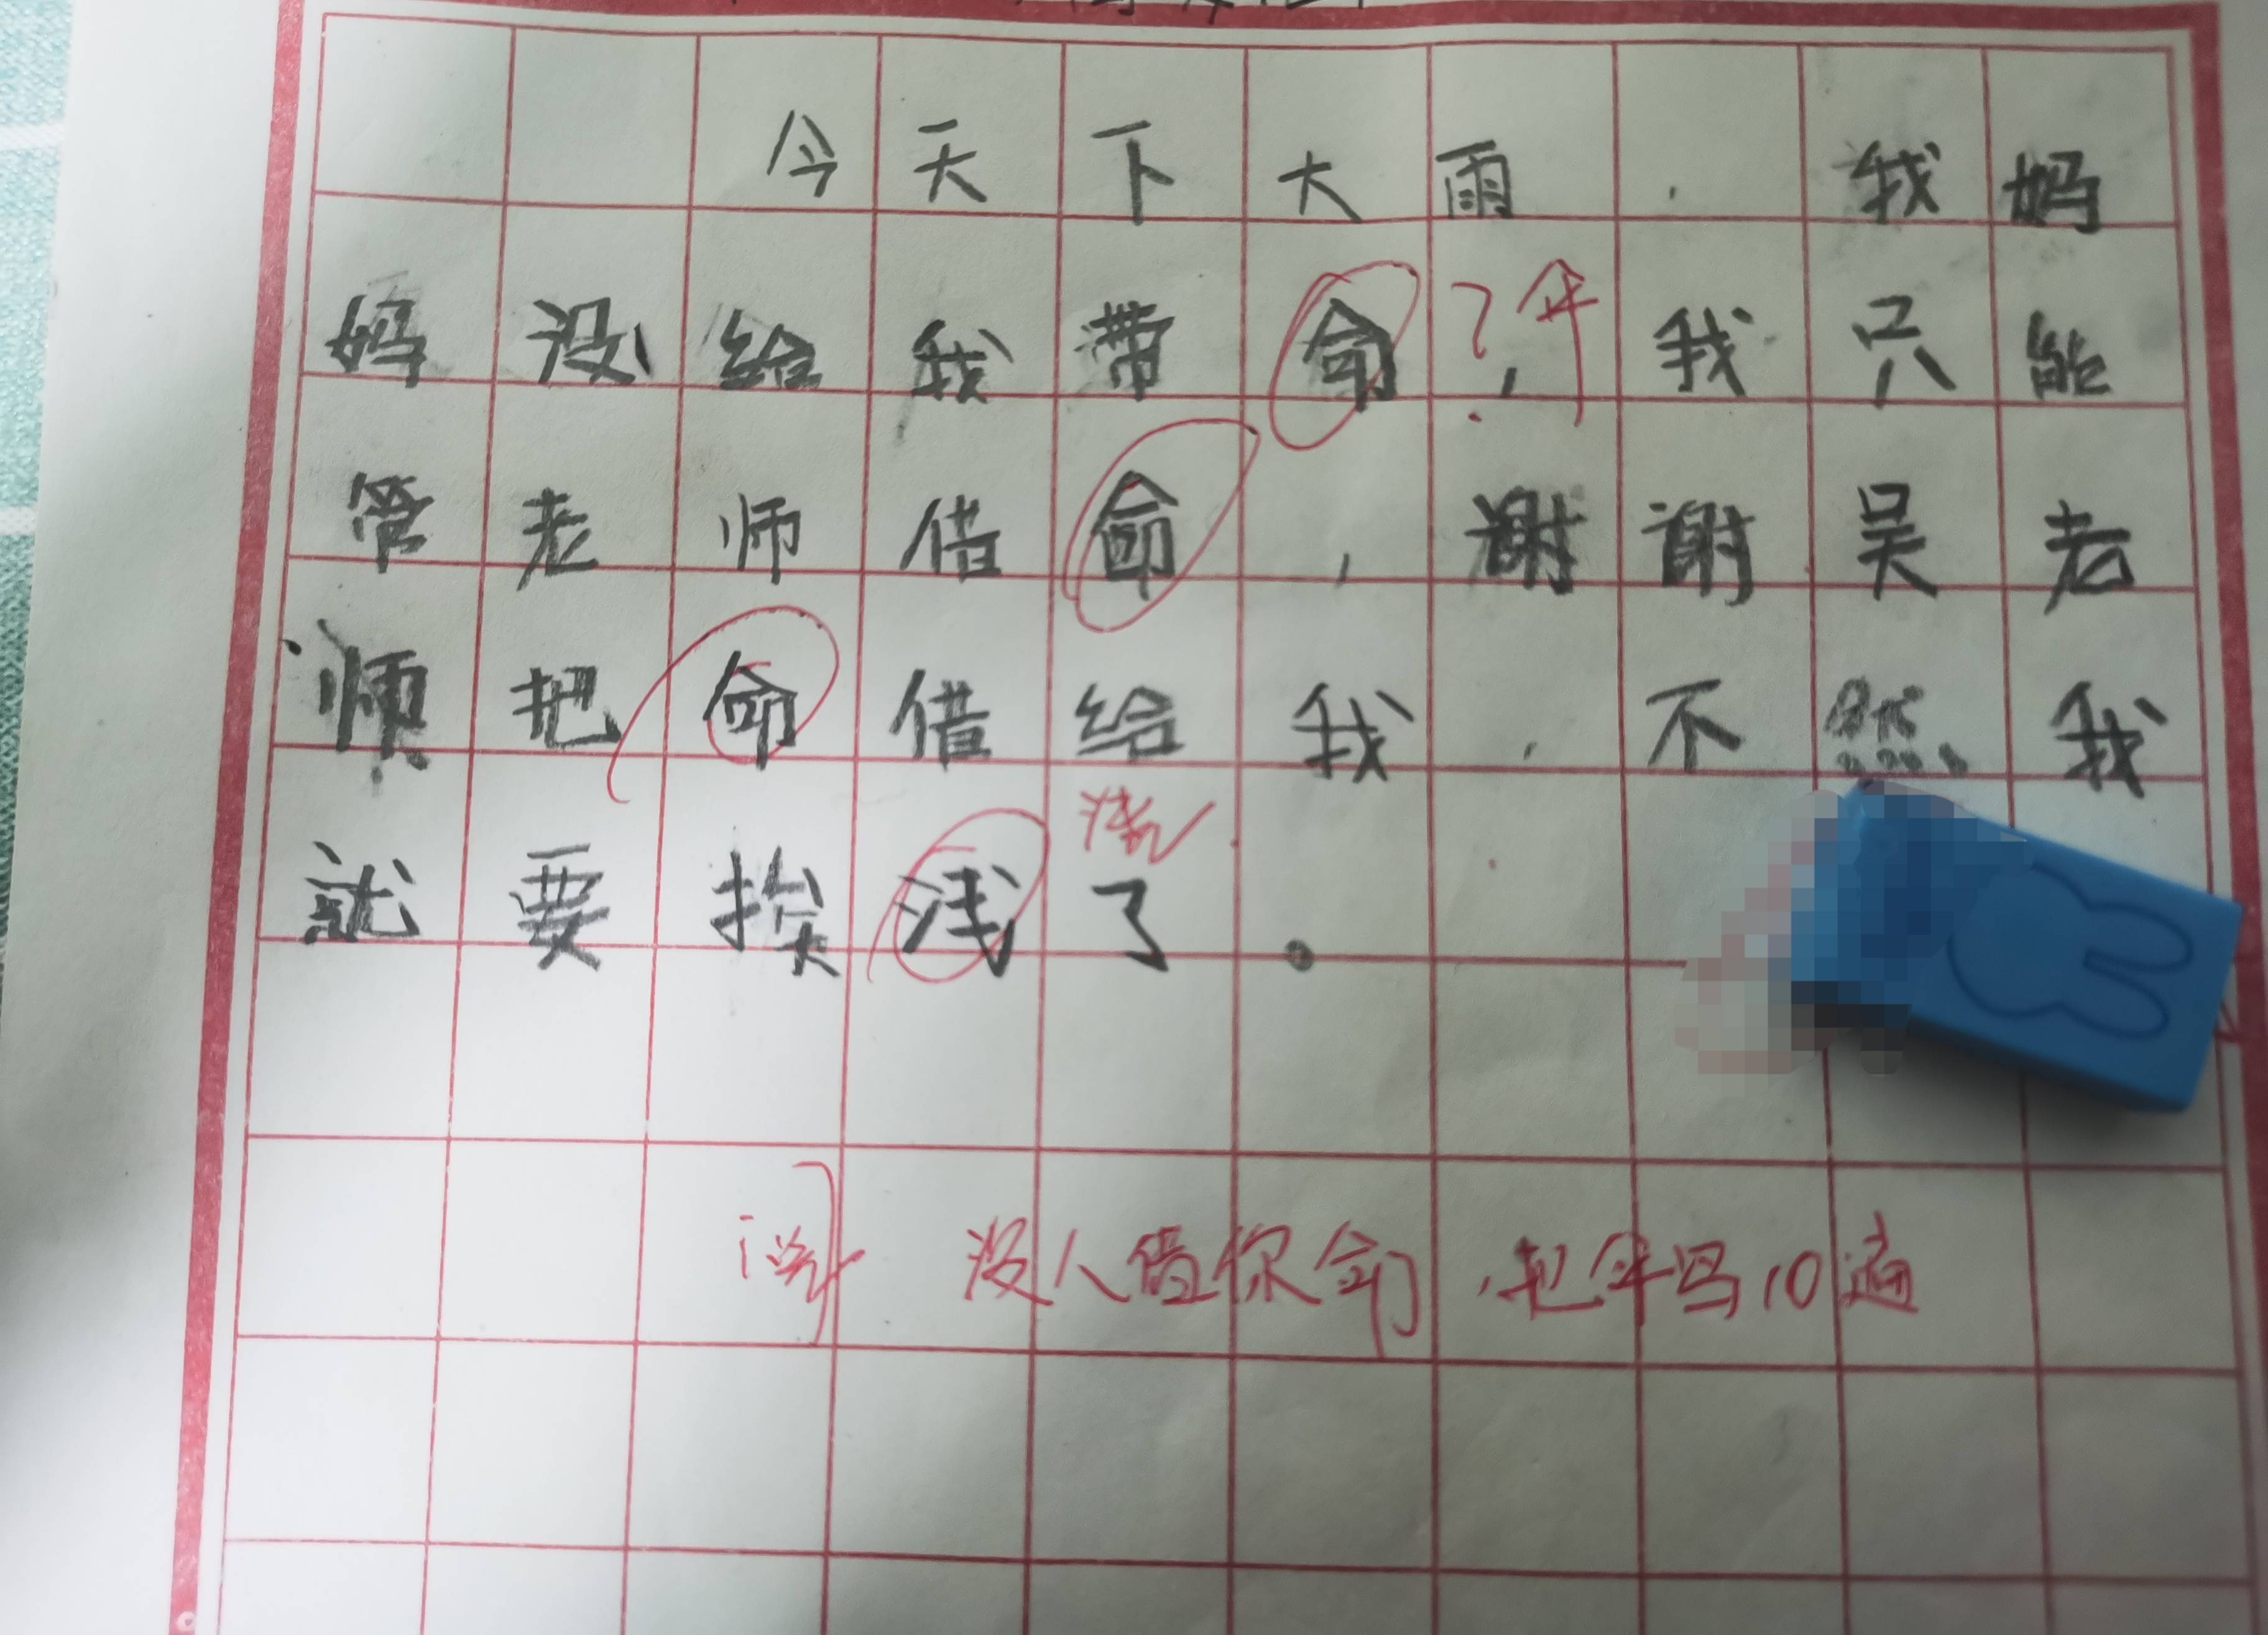 今天下大雨，我妈
妈没给我带命，我只能
？伞
管老师借命，谢谢吴老
师把命借给我，不然我
就要挨浅了。
浇
没人借你命，把伞写10遍